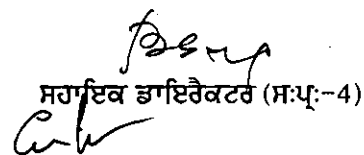 ਸਹਾਇਕ ਡਾਇਰੈਕਟਰ (ਸ:ਪ੍ਰ:-4)